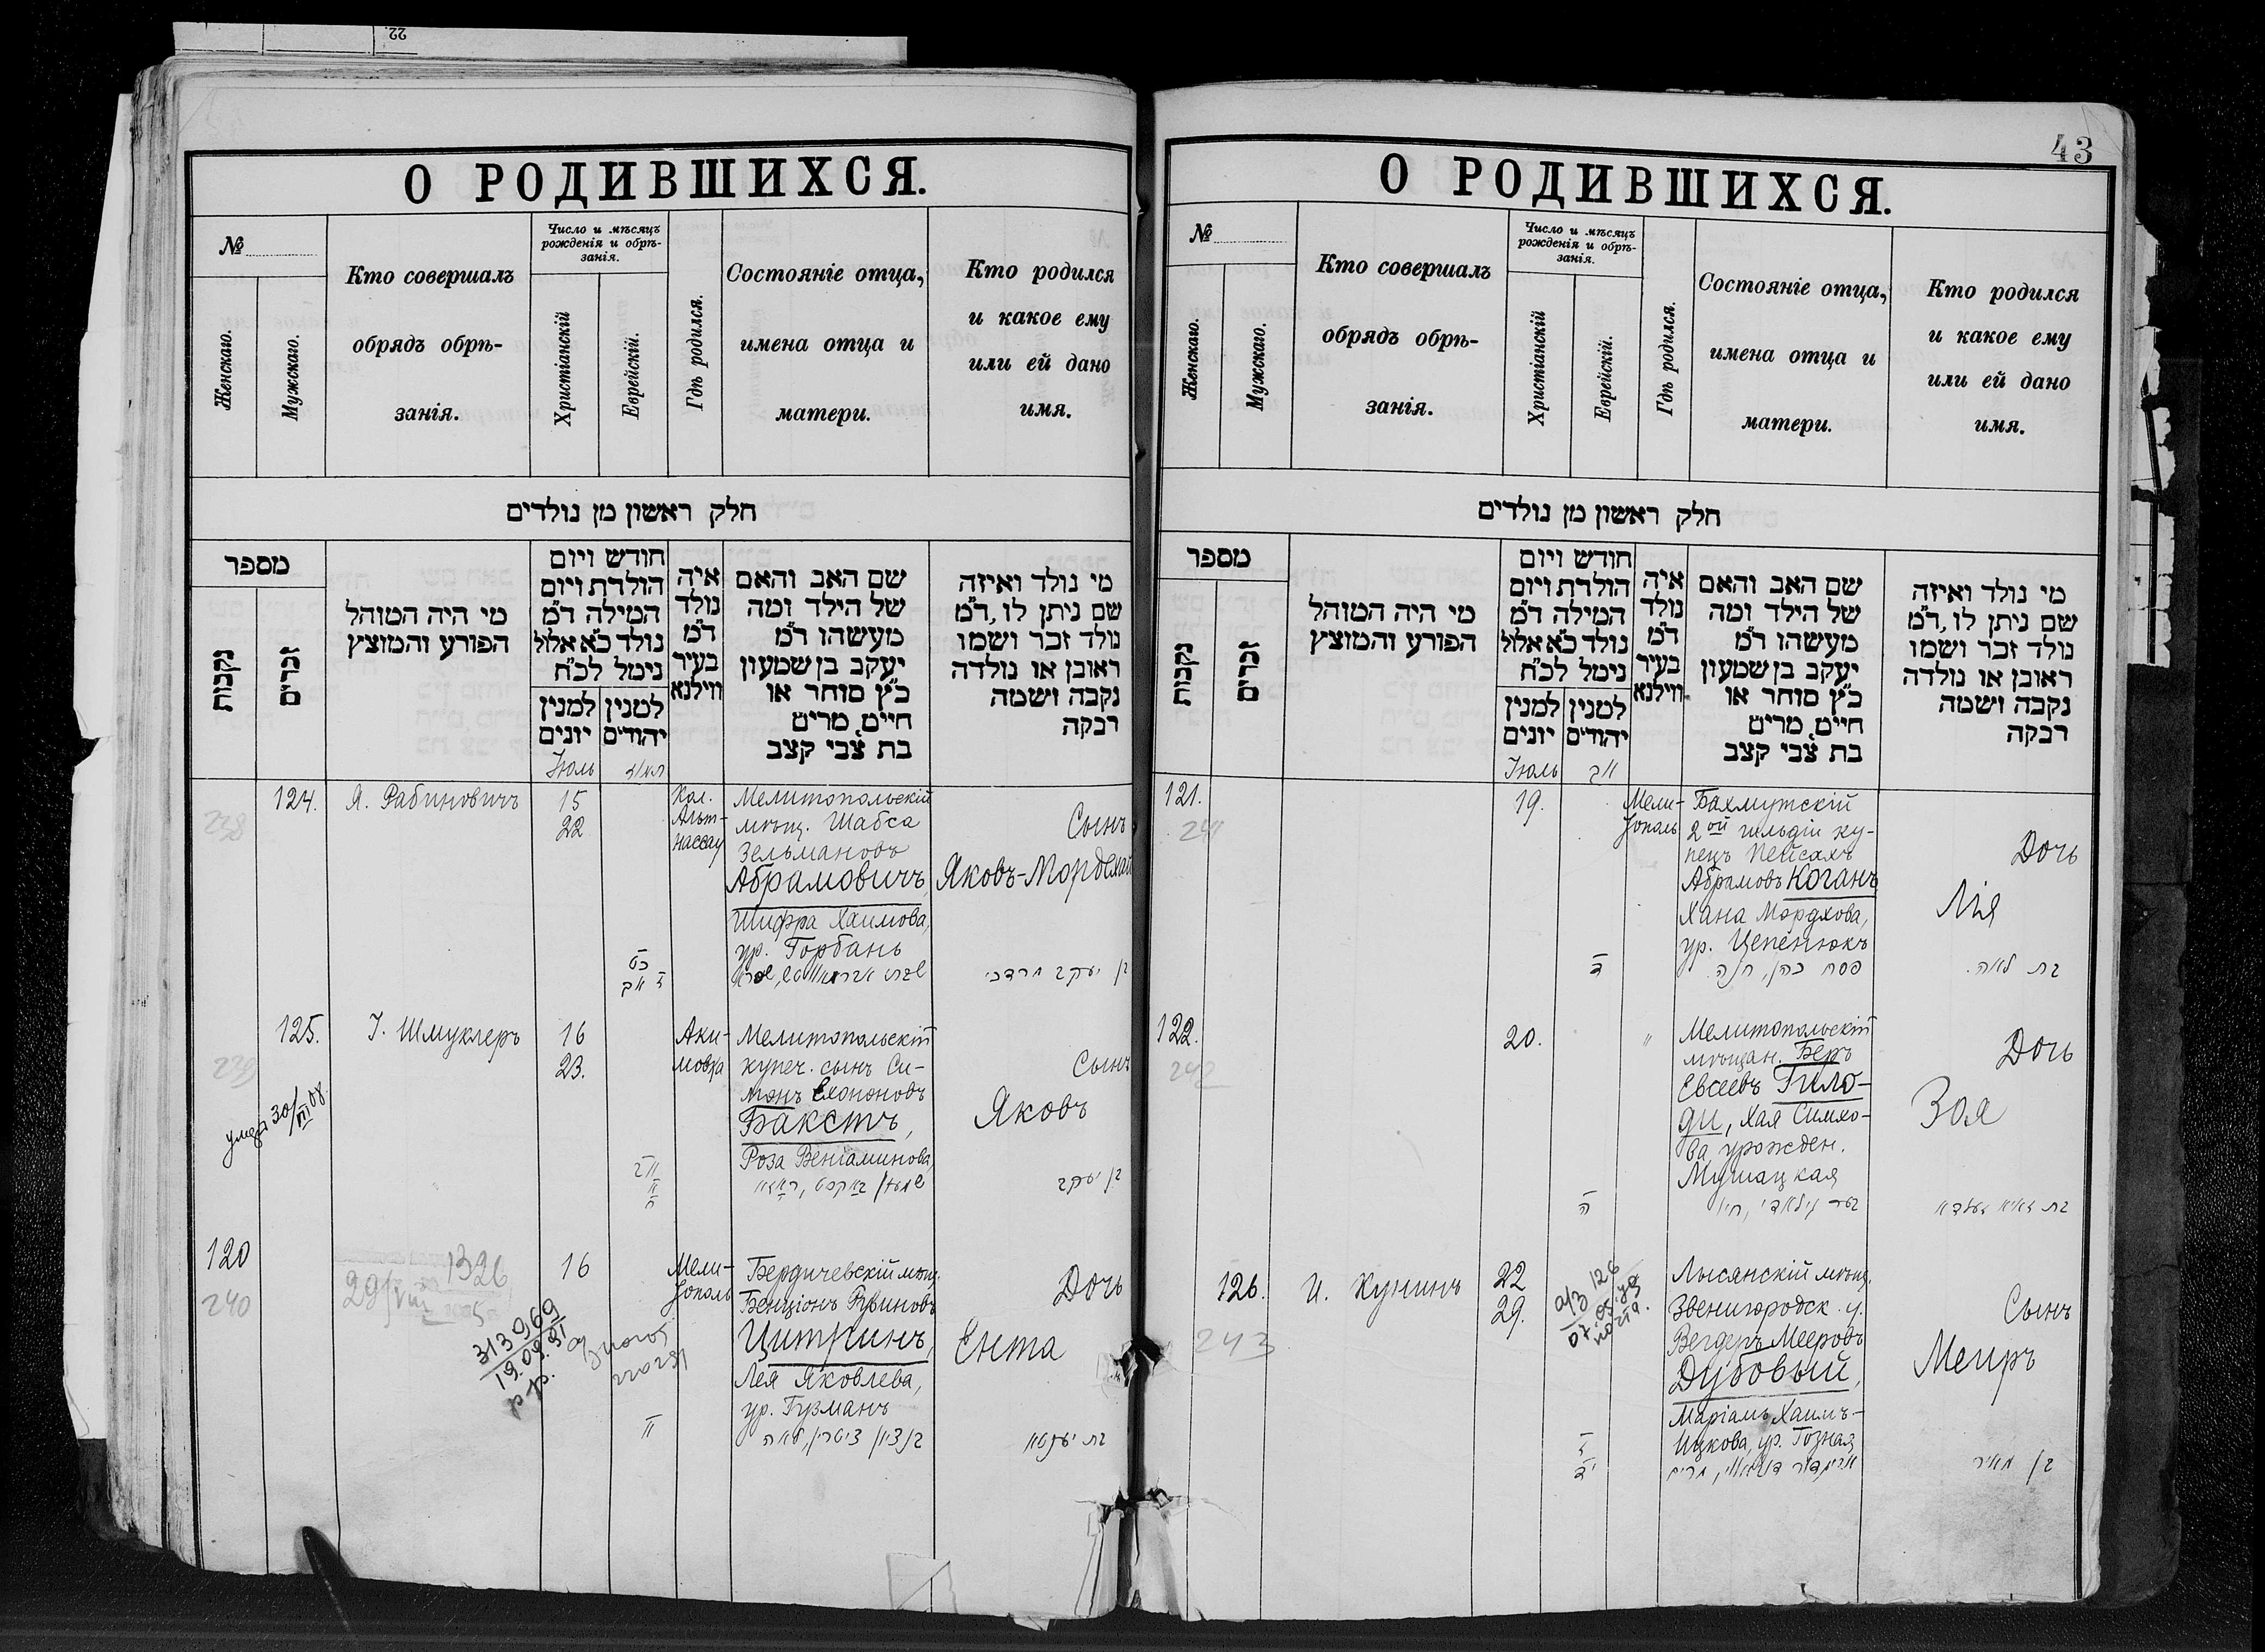 22
О РОДИВШИХСЯ.
№
Женскаго.
Мужскаго.
Кто совершалъ
обрядъ обрѣ-
занія.
Число и мѣсяцъ
рожденія и обрѣ-
занія.
Христіанскій
Еврейскій.
Гдѣ родился.
Состояніе отца,
имена отца и
матери.
Кто родился
и какое ему
или ей дано
имя.
חלק ראשון מן נולדים
מספר
נקבות
זכרים
מי היה המוהל
הפורע והמוצץ
חודש ויום
הולדת ויום
המילה ד״מ
נולד כ״א אלול
נימל לכ״ח
למנין
יונים
למנין
יהודים
איה
נולד
ד״מ
בעיר
ווילנא
שם האב והאם
של הילד ומה
מעשהו ד״מ
יעקב בן שמעון
כ״ץ סוחר או
חיים, מרים
בת צבי קצב
מי נולד ואיזה
שם ניתן לו, ד״מ
נולד זכר ושמו
ראובן או נולדה
נקבה ושמה
רבקה
Іюль
תמוז
124.
238
Я. Рабиновичъ
15
22
Кол.
Альт-
нассау
Мелитопольскій
мѣщ. Шабса
Зельмановъ
Абрамовичъ,
Шифра Хаимова,
ур. Горбань
Сынъ
Яковъ-Мордехай
כט
אב
בן יעקב מרדכי
125.
239
умеръ 30/VII 08.
І. Шмуклеръ
16
23.
Аки-
мовка
Мелитопольскій
купеч. сынъ Си-
монъ
Бакстъ,
Роза Веніаминова
Сынъ
Яковъ
בן יעקב
120
240
1326
29/VIII
313969
19.09.91
16
Мели-
тополь
Бердичевскій мѣщ.
Бенціонъ Рувиновъ
Цитринъ,
Лея Яковлева,
ур. Гузманъ
בן ציון ציטרין, לאה
Дочь
Ента
בת יענטא
43
О РОДИВШИХСЯ.
№
Женскаго.
Мужскаго.
Кто совершалъ
обрядъ обрѣ-
занія.
Число и мѣсяцъ
рожденія и обрѣ-
занія.
Христіанскій
Еврейскій.
Гдѣ родился.
Состояніе отца,
имена отца и
матери.
Кто родился
и какое ему
или ей дано
имя.
חלק ראשון מן נולדים
מספר
נקבות
זכרים
מי היה המוהל
הפורע והמוצץ
חודש ויום
הולדת ויום
המילה ד״מ
נולד כ״א אלול
נימל לכ״ח
למנין
יונים
למנין
יהודים
איה
נולד
ד״מ
בעיר
ווילנא
שם האב והאם
של הילד ומה
מעשהו ד״מ
יעקב בן שמעון
כ״ץ סוחר או
חיים, מרים
בת צבי קצב
מי נולד ואיזה
שם ניתן לו, ד״מ
נולד זכר ושמו
ראובן או נולדה
נקבה ושמה
רבקה
Іюль
אב
121.
241
19.
Мели-
тополь
Бахмутскій
2ой гильдіи ку-
пецъ Пейсахъ
Абрамовъ Коганъ
Хана Мордхова,
ур. Цепенюкъ
פסח כהן, חנה
ד
Дочь
Лія
בת לאה.
122.
242
20.
"
Мелитопольскій
мѣщан. Беръ
Евсеевъ Гило-
ди, Хая Симхо-
ва урожден.
Мушацкая
ה
Дочь
Зоя
126.
243
И. Кунинъ
22
29.
а/з 126
Лысянскій мѣщ.
Звенигородск. у.
Вегдеръ Мееровъ
Дубовый,
Маріамъ Хаимъ-
Ицкова, ур. Гозная
ז
יד
Сынъ
Меиръ
בן מאיר